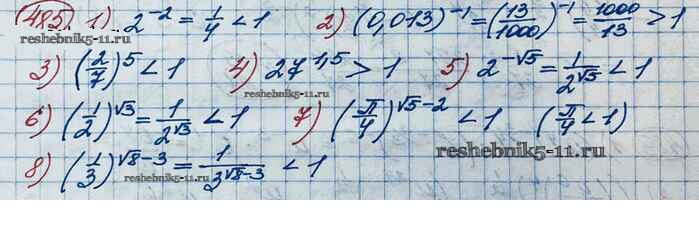 485. 1) 2^{-2} = \frac{1}{4} < 1 2) (0,013)^{-1} = (\frac{13}{1000})^{-1} = \frac{1000}{13} > 1
reshebnik5-11.ru
3) (\frac{2}{7})^5 < 1 4) 27^{1,5} > 1 5) 2^{-\sqrt{5}} = \frac{1}{2^{\sqrt{5}}} < 1
reshebnik5-11.ru
6) (\frac{1}{2})^{\sqrt{3}} = \frac{1}{2^{\sqrt{3}}} < 1 7) (\frac{π}{4})^{\sqrt{5}-2} < 1 (\frac{π}{4} < 1)
reshebnik5-11.ru
reshebnik5-11.ru
8) (\frac{1}{3})^{\sqrt{8}-3} = \frac{1}{3^{\sqrt{8}-3}} < 1
reshebnik5-11.ru